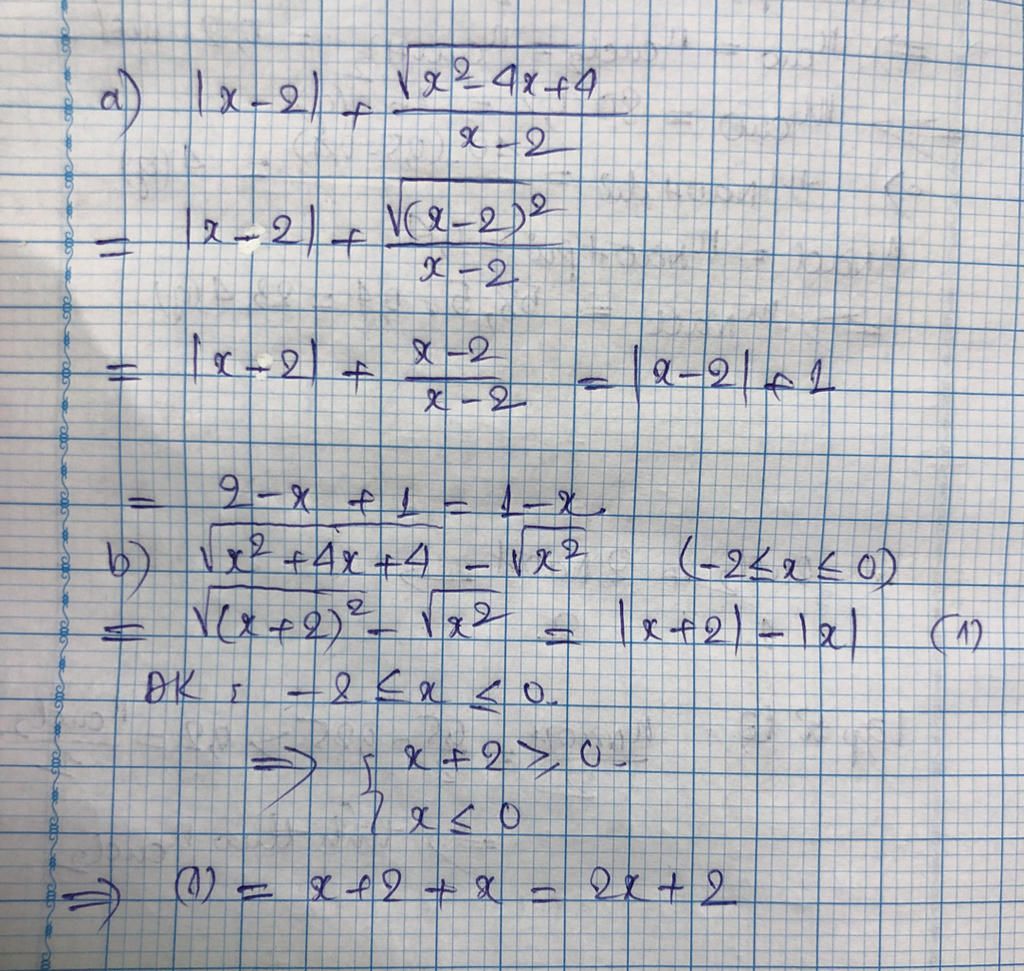 a) |x-2| + √(x²-4x+4) / (x-2)
= |x-2| + √(x-2)² / (x-2)
= |x-2| + (x-2) / (x-2) = |x-2| + 1
= 2-x + 1 = 1-x.
b) √(x²+4x+4) - √x² (-2 ≤ x ≤ 0)
= √(x+2)² - √x² = |x+2| - |x| (1)
ĐK : -2 ≤ x ≤ 0.
=> { x+2 ≥ 0
x ≤ 0
=> (1) = x+2 + x = 2x+2